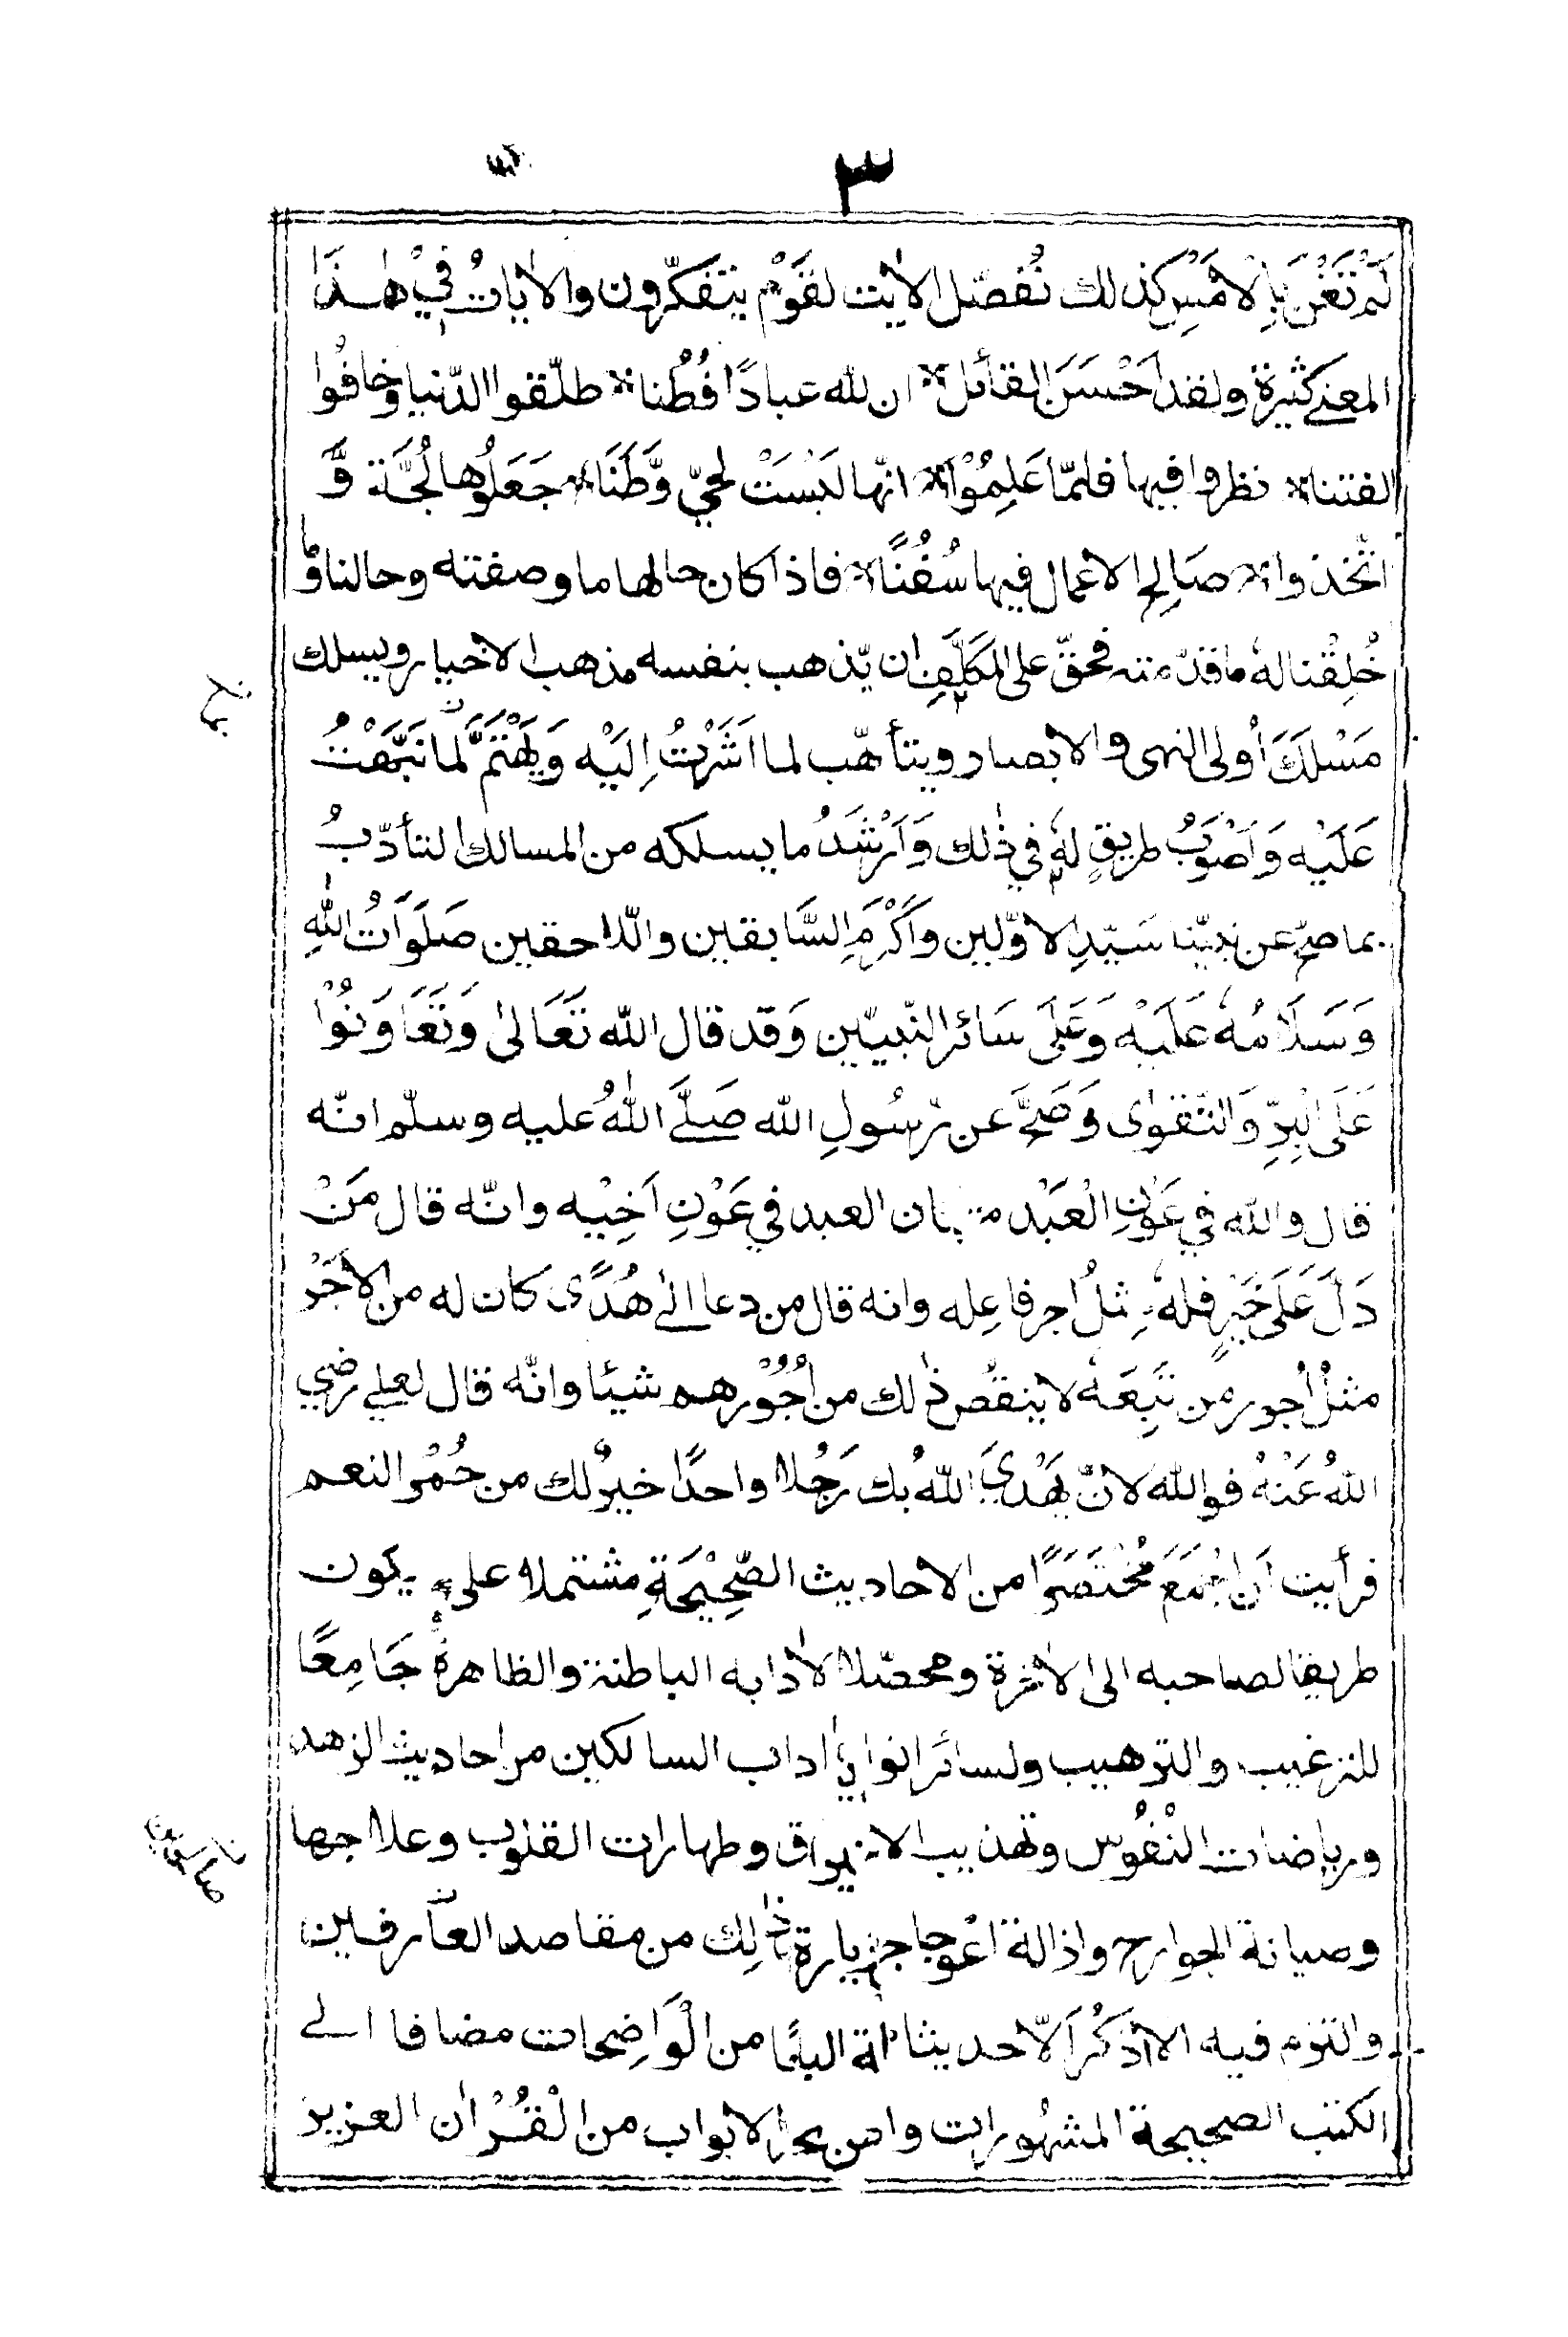 ٣
لَمْ تَغْنَ بِالْاَمْسِ كذلك نُفصّل الاٰيٰت لقَوْمٍ يتفكّرون والاٰياتُ فِيْ هٰذَا
المعنے كثيرة ولقد اَحْسَنَ القائل * ان لله عبادًا فُطُنا * طلّقوا الدّنيا وخافُوا
الفتنا * نظروا فيها فلمّا عَلِمُوْا * انّها لَيْسَتْ لحيّ وَّطَنَا * جَعَلُوها لُجَّة وَّ
اتّخذوا * صَالِح الاعمال فيها سُفُنًا * فاذا كان حالها ما وصفته وحالنا وما
خُلِقْنا لهٗ ما قدّمته فحقّ على المكلَّفِ ان يّذهب بنفسه مذهب الاخيار ويسلك
مَسْلَكَ اُولى النهى والابصار ويتأهّب لما اَشَرْتُ اِلَيْه وَيَهْتَمَّ لما نَبَّهْتُ
عَلَيْه وَاَصْوَبُ طريقٍ لهٗ في ذٰلك وَاَرْشَدُ ما يسلكه من المسالك التأدّبُ
بما صحّ عن نبيّنا سَيّدِ الاوّلين وَاَكْرَمِ السَّابقين والّلاحقين صَلَوَاتُ اللهِ
وَسَلَامُهٗ عَلَيْه وَعَلٰى سَائر النّبييّن وَقد قال الله تَعَالىٰ وَتَعَاوَنُوْا
عَلَى الْبِرِّ وَالتّقوٰى وَصَحَّ عن رّسُولِ الله صَلَّے اللهُ عليه وسلّم انّه
قال والله في عَوْنِ الْعَبْد ما كان العبد في عَوْنِ اَخِيْه وانّه قال مَنْ
دَلَّ عَلَى خَيْرٍ فلهٗ مِثلُ اجر فاعِله وانه قال من دعا الےٰ هُدًى كان له من الاَجْر
مثلُ اُجور من تَبِعَهٗ لا ينقُص ذٰلك من اُجُوْرهم شيئا وانّه قال لعلے رضي
اللهُ عَنْهُ فوالله لانْ يَّهْدِيَ اللهُ بك رَجُلا واحدًا خيرٌ لك من حُمْر النعم
فرأيت اَن اجْمَعَ مُخْتَصَرًا من الاحاديث الصَّحِيْحَةِ مشتملا على يكون
طريقا لصاحبه الى الاٰخرة ومحصّلا لاٰدابه الباطنة والظاهرة جَامِعًا
للترغيب والترهيب ولسائر انواع اداب السالكين من احاديث الزهد
ورياضات النُّفُوْس وتهذيب الاخلاق وطهارات القلوب وعلاجها
وصيانة الجوارح واذالة اعوجاجها ذٰلِك من مقاصد العارفين
والتزم فيه الا اذكُرَ الّا حديثا من الْوَاضِحَات مضافا الے
الكتب الصحيحة المشهُورات الابواب من الْقُرْاٰن العزيز